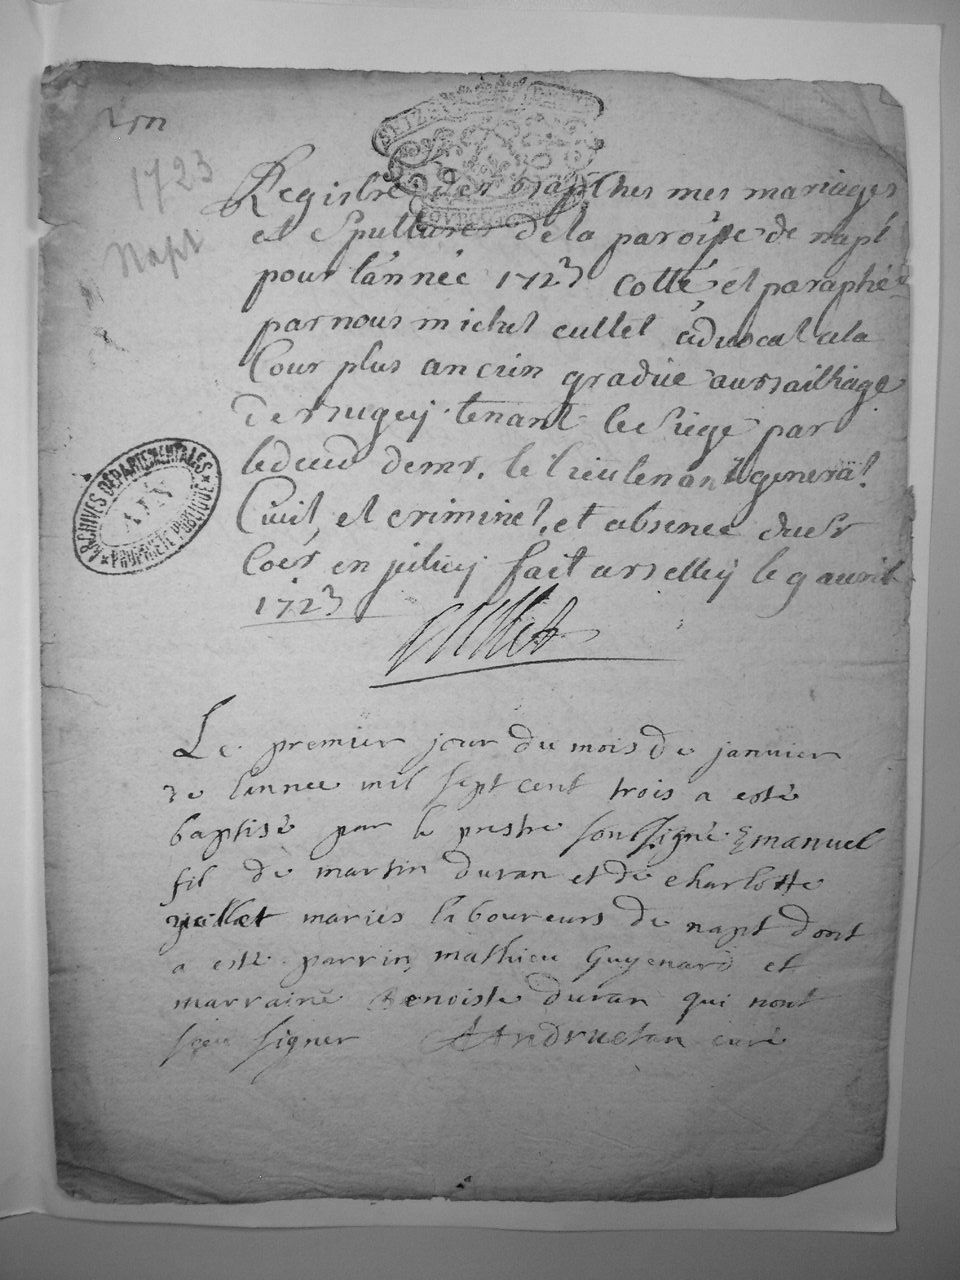 1723
Napt
Registre des baptesmes mariages
et Sepultures de la paroisse de napt
pour l'année 1723 cotté et paraphé
par nous michel cullet advocat a la
Cour plus ancien gradué au bailliage
de bugey tenant le siege par
le deced de mr. le lieutenant general
Civil et criminel, et absence du sr
en fait a belley le 9 avril
1723
Cullet
ARCHIVES DÉPARTEMENTALES
AIN
PROPRIÉTÉ PUBLIQUE
Le premier jour du mois de janvier
de lannee mil sept cent trois a esté
baptisé par le prestre soussigné Emanuel
fil de martin duran et de charlotte
mariés laboureurs de napt dont
a esté parrin mathieu Guyenard et
marraine Benoiste duran qui nont
sceu signer curé